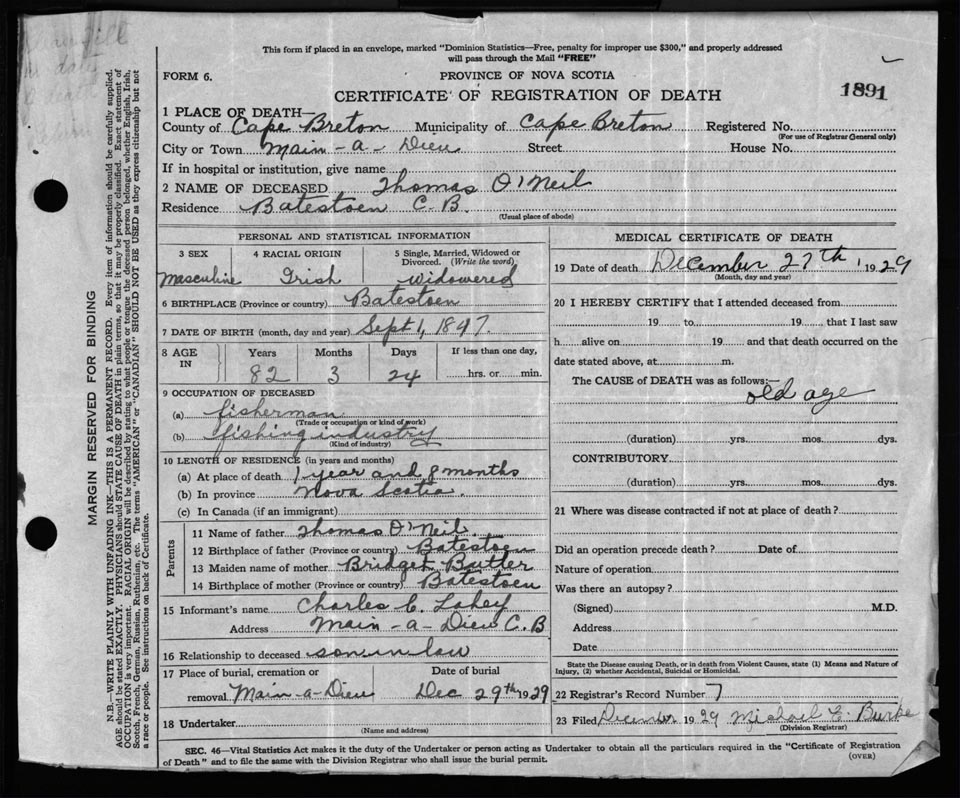 This form if placed in an envelope, marked "Dominion Statistics—Free, penalty for improper use $300," and properly addressed
will pass through the Mail "FREE"
FORM 6. PROVINCE OF NOVA SCOTIA
CERTIFICATE OF REGISTRATION OF DEATH 1891
1 PLACE OF DEATH—
County of Cape Breton Municipality of Cape Breton Registered No.
(For use of Registrar General only)
City or Town Main-a-Dieu Street House No.
If in hospital or institution, give name
2 NAME OF DECEASED Thomas O'Neil
Residence Batestoen C.B.
(Usual place of abode)
PERSONAL AND STATISTICAL INFORMATION
3 SEX 4 RACIAL ORIGIN 5 Single, Married, Widowed or
Divorced. (Write the word)
Masculine Irish Widowered
6 BIRTHPLACE (Province or country) Batestoen
7 DATE OF BIRTH (month, day and year) Sept 1, 1847
8 AGE IN Years Months Days If less than one day,
82 3 24 hrs. or min.
9 OCCUPATION OF DECEASED
(a) fisherman
(Trade or occupation or kind of work)
(b) fishing industry
(Kind of industry)
10 LENGTH OF RESIDENCE (in years and months)
(a) At place of death 1 year and 8 months
(b) In province Nova Scotia.
(c) In Canada (if an immigrant)
Parents
11 Name of father Thomas O'Neil.
12 Birthplace of father (Province or country) Batestoen
13 Maiden name of mother Bridget Butler
14 Birthplace of mother (Province or country) Batestoen
15 Informant's name Charles C. Lahey
Address Main-a-Dieu C.B
16 Relationship to deceased son in law
17 Place of burial, cremation or Date of burial
removal Main-a-Dieu Dec 29th 1929
18 Undertaker
(Name and address)
MEDICAL CERTIFICATE OF DEATH
19 Date of death December 27th, 1929
(Month, day and year)
20 I HEREBY CERTIFY that I attended deceased from
19 to 19 that I last saw
h alive on 19 and that death occurred on the
date stated above, at m.
The CAUSE of DEATH was as follows:—
old age
(duration) yrs. mos. dys.
CONTRIBUTORY
(duration) yrs. mos. dys.
21 Where was disease contracted if not at place of death?
Did an operation precede death? Date of
Nature of operation
Was there an autopsy?
(Signed) M.D.
Address
Date
State the Disease causing Death, or in death from Violent Causes, state (1) Means and Nature of
Injury, (2) whether Accidental, Suicidal or Homicidal.
22 Registrar's Record Number 7
23 Filed December 1929 Michael Burke
(Division Registrar)
SEC. 46—Vital Statistics Act makes it the duty of the Undertaker or person acting as Undertaker to obtain all the particulars required in the "Certificate of Registration
of Death" and to file the same with the Division Registrar who shall issue the burial permit.
(OVER)
MARGIN RESERVED FOR BINDING
N.B.—WRITE PLAINLY WITH UNFADING INK—THIS IS A PERMANENT RECORD. Every item of information should be carefully supplied.
AGE should be stated EXACTLY. PHYSICIANS should STATE CAUSE OF DEATH in plain terms, so that it may be properly classified. Exact statement of
OCCUPATION is very important. RACIAL ORIGIN will be described by stating to what people or tongue the deceased person belonged, whether English, Irish,
Scotch, French, German, Russian, Ruthenian, etc. The terms "AMERICAN" or "CANADIAN" SHOULD NOT BE USED as they express citizenship but not
a race or people. See instructions on back of Certificate.